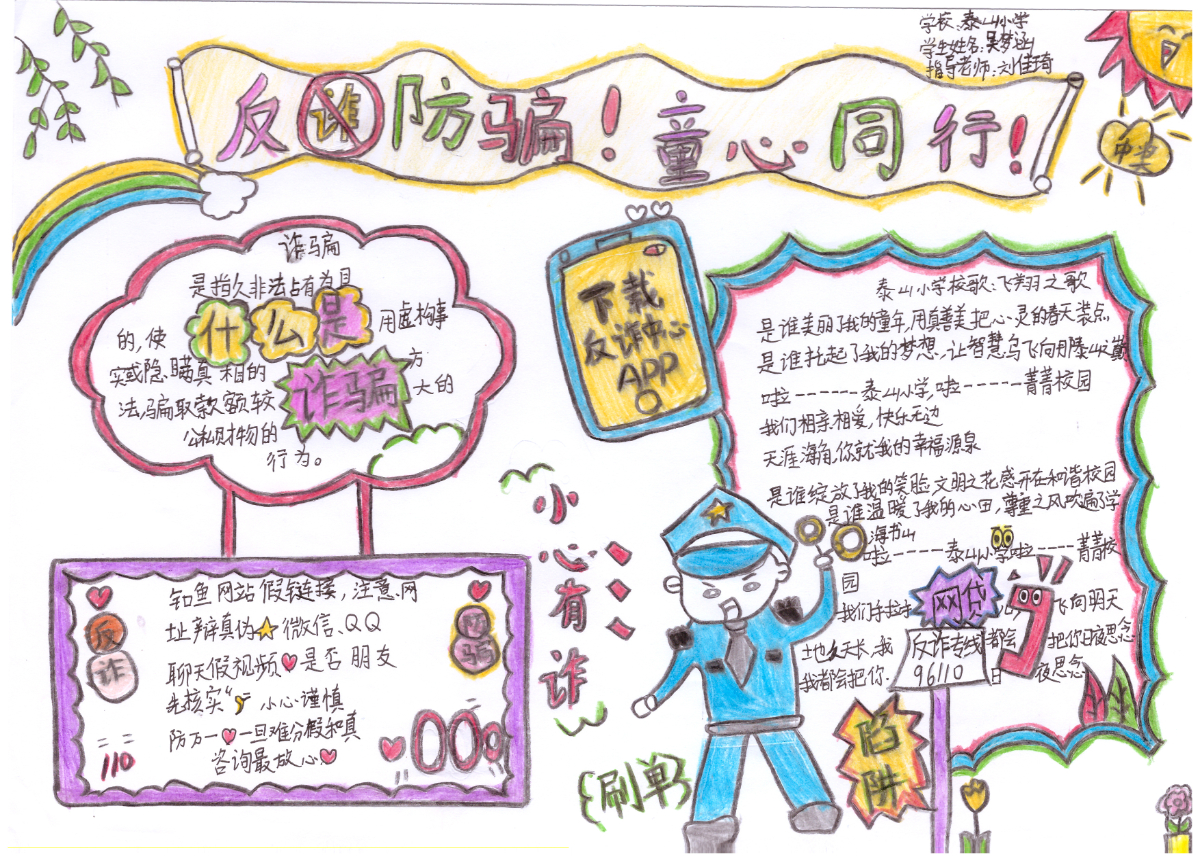 学校:泰山小学
学生姓名:吴梦涵
指导老师:刘佳琦
反诈防骗!童心同行!
诈骗
是指以非法占有为目
的,使
用虚构事
实或隐瞒真相的
方
法,骗取款额较
大的
公私财物的
行为。
什么是
诈骗
下载
反诈中心
APP
泰山小学校歌:飞翔之歌
是谁美丽了我的童年,用真善美把心灵的春天装点
是谁托起了我的梦想,让智慧鸟飞向泰山之巅
啦------泰山小学,啦------菁菁校园
我们相亲相爱,快乐无边
天涯海角,你就我的幸福源泉
是谁绽放了我的笑脸,文明之花盛开在和谐校园
是谁温暖了我的心田,尊重之风吹遍了学
海书山
啦------泰山小学啦-----菁菁校
园
我们手拉手
飞向明天
土地久天长,我
都会
把你日夜思念
我都会把你
日
夜思念
小心有诈
钓鱼网站假链接,注意网
址辩真伪 微信、QQ
聊天假视频 是否朋友
先核实“ 小心谨慎
防万一 一旦难分假和真
咨询最放心
反
诈
网
骗
110
网贷
反诈专线
96110
陷
阱
刷单